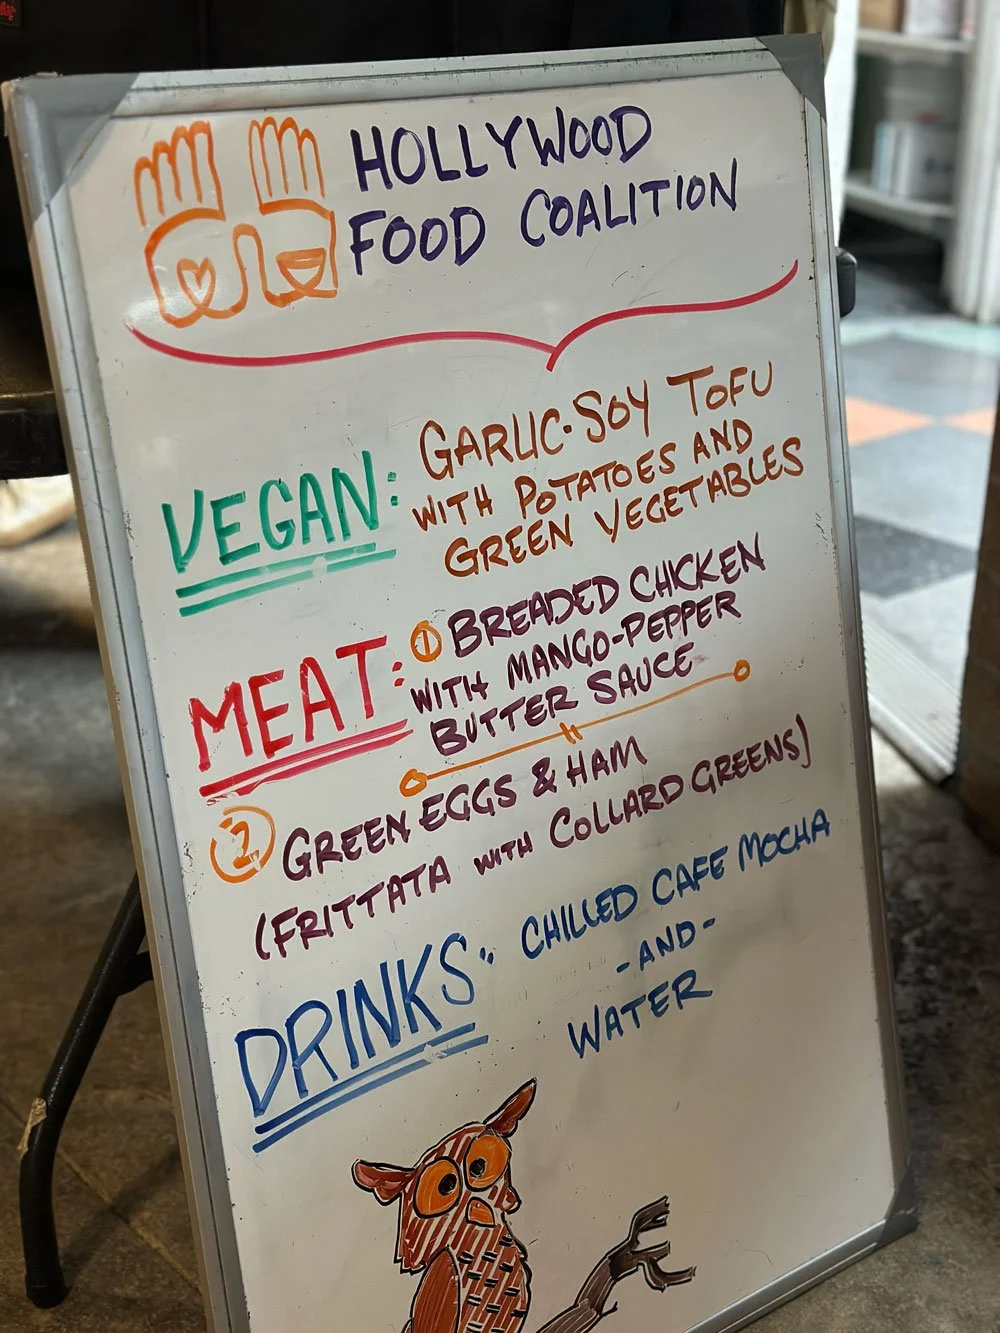 HOLLYWOOD
FOOD COALITION
VEGAN: GARLIC·SOY TOFU
WITH POTATOES AND
GREEN VEGETABLES
MEAT: ① BREADED CHICKEN
WITH MANGO-PEPPER
BUTTER SAUCE
② GREEN EGGS & HAM
(FRITTATA WITH COLLARD GREENS)
DRINKS: CHILLED CAFE MOCHA
-AND-
WATER